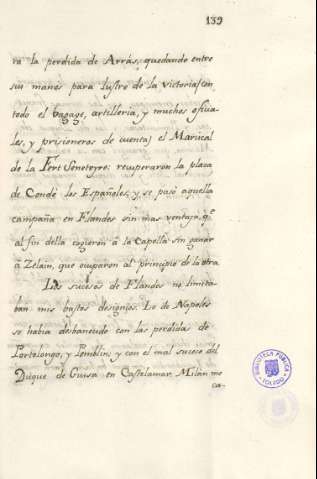 139
ra la perdida de Arrás; quedando entre
sus manos para lustre de la victoria (con
todo el bagage, artilleria, y muchos oficia-
les, y prisioneros de cuenta) el Mariscal
de la Fert Seneteyre: recuperaron la plaza
de Condé los Españoles, y se pasó aquella
campaña en Flandes sin mas ventaja, qe.
al fin della cogieron â la Capella sin ganar
â Zelain, que ocuparon al principio de la otra
Los sucesos de Flandes no limita-
ban mis bastos designios. Lo de Napoles
se habia desbanecido con las perdidas de
Portolongo, y Pomblin; y con el mal suceso del
Duque de Guisa en Castelamar. Milan me
ca-
BIBLIOTECA PÚBLICA
TOLEDO